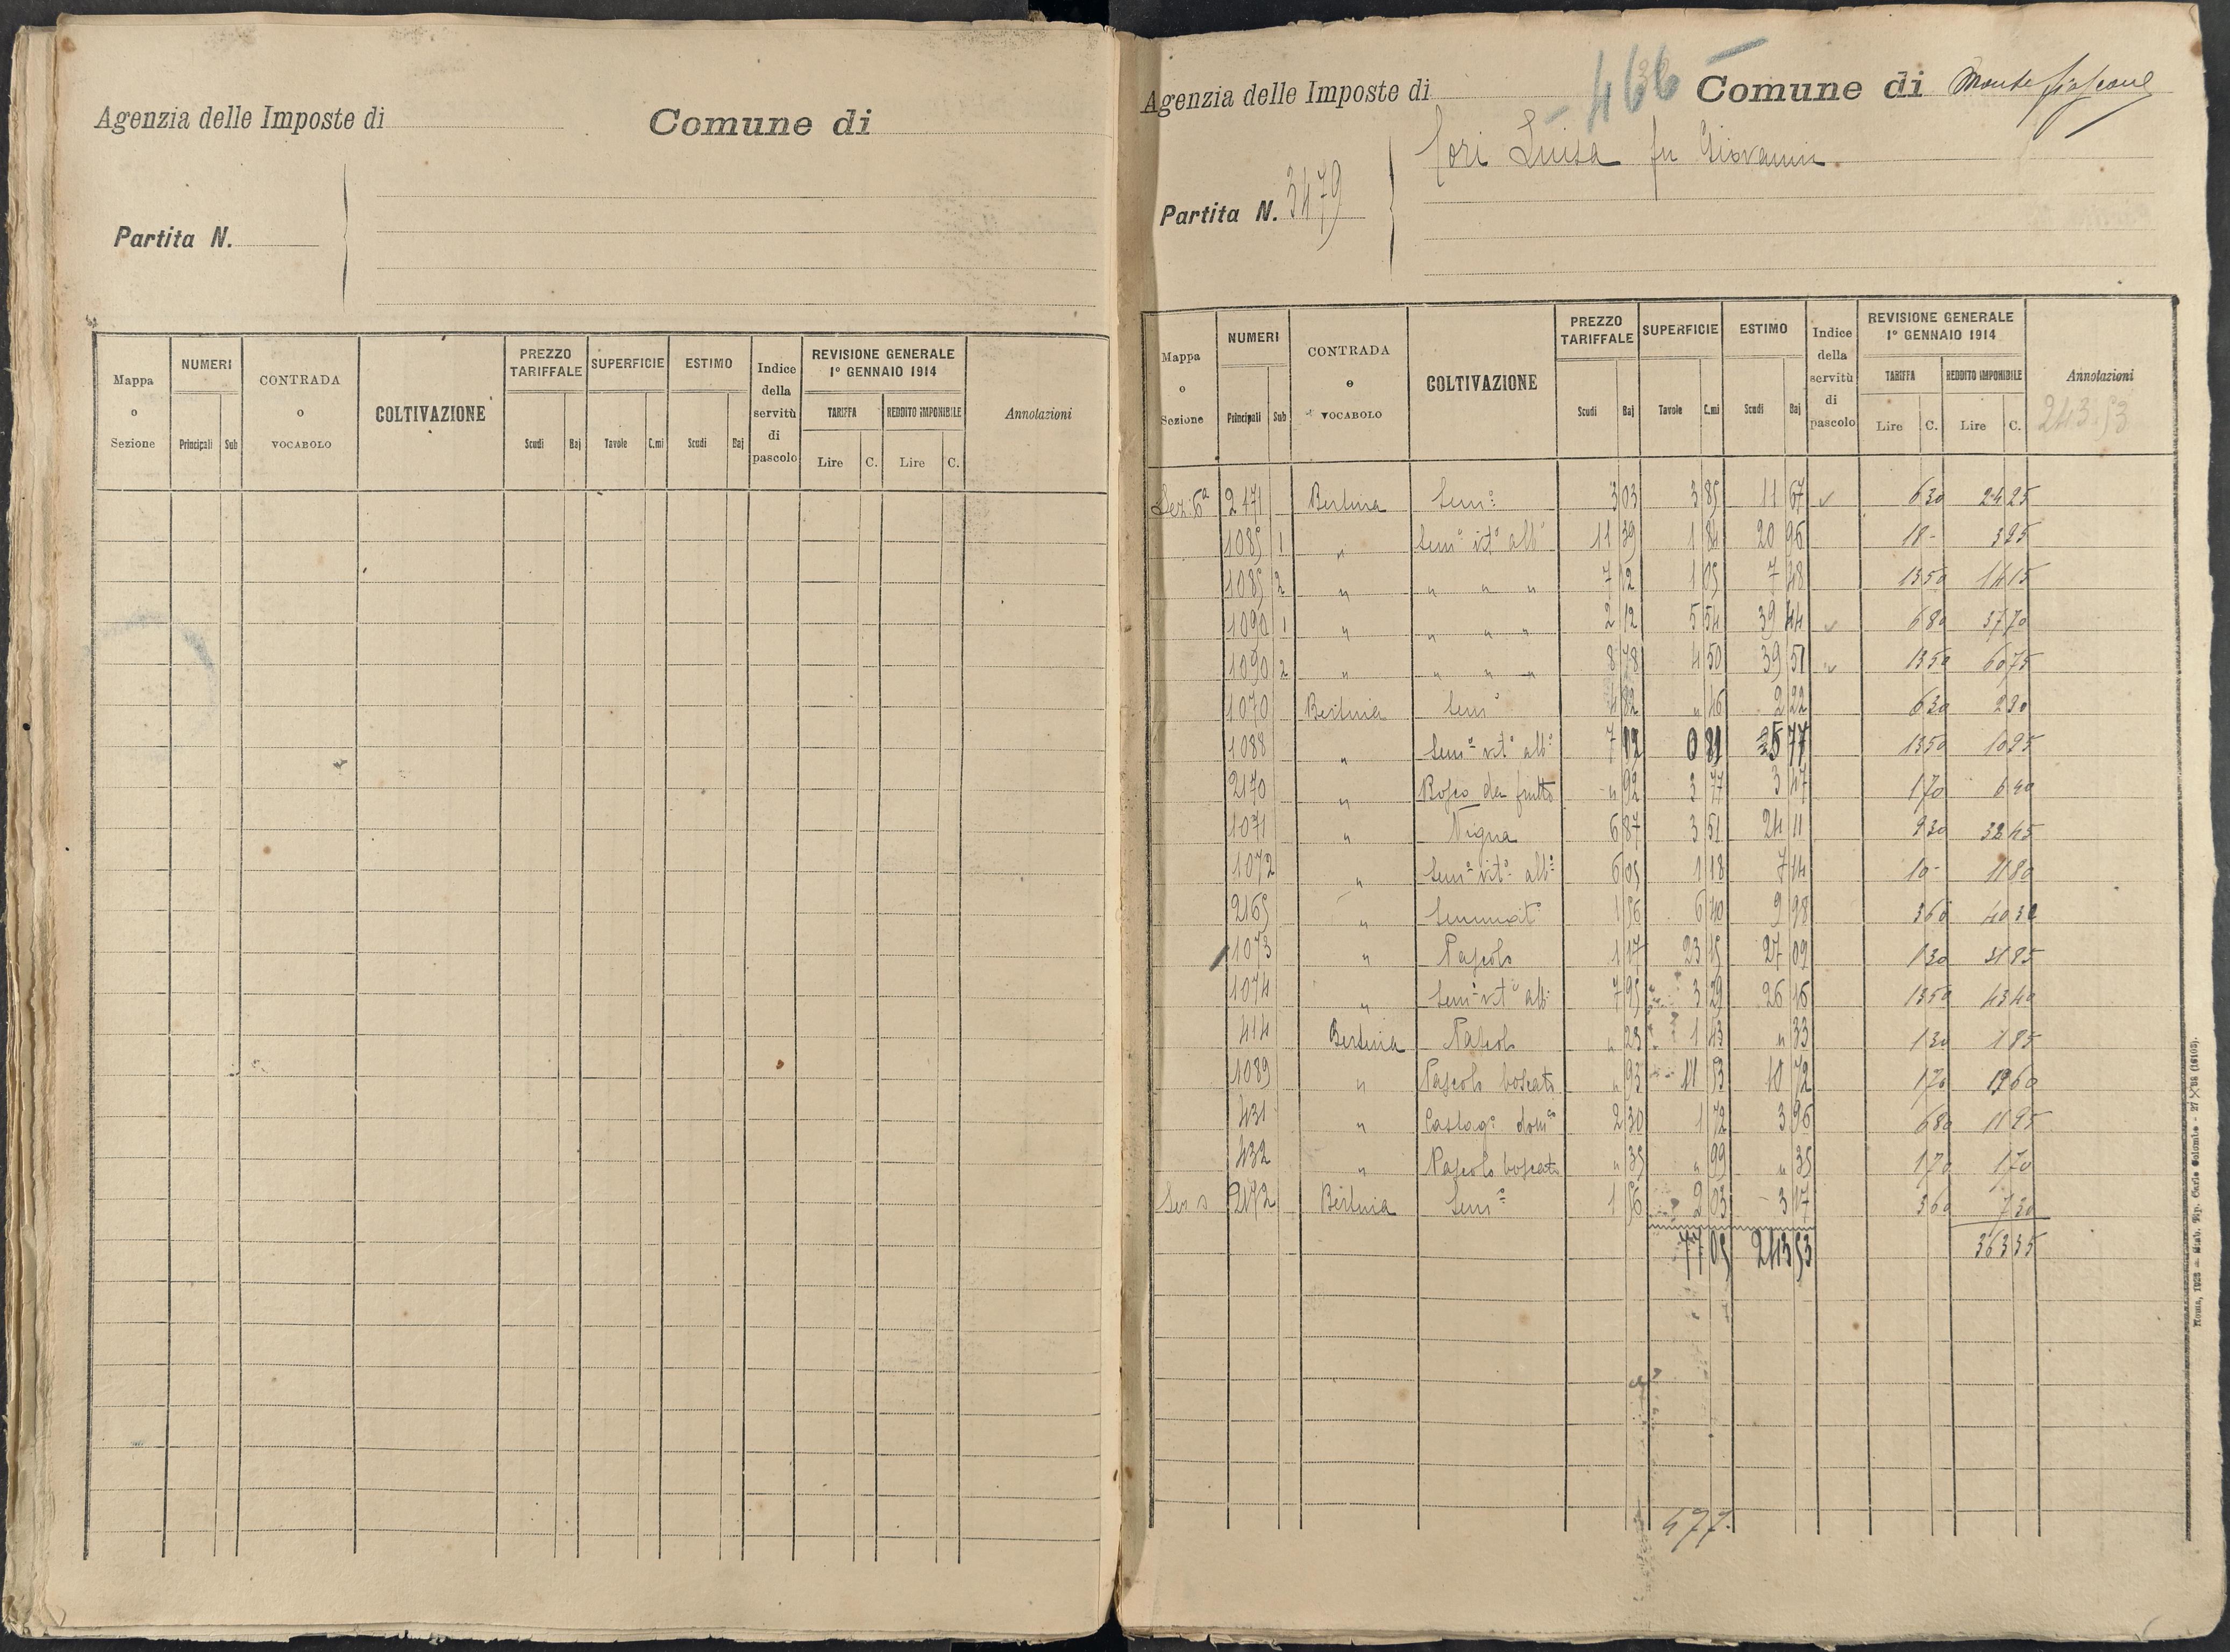 Agenzia delle Imposte di
Comune di
Partita N.
Mappa o Sezione
NUMERI
Principali
Sub
CONTRADA o VOCABOLO
COLTIVAZIONE
PREZZO TARIFFALE
Scudi
Baj
SUPERFICIE
Tavole
C.mi
ESTIMO
Scudi
Baj
Indice della servitù di pascolo
REVISIONE GENERALE 1° GENNAIO 1914
TARIFFA
Lire
C.
REDDITO IMPONIBILE
Lire
C.
Annotazioni
Agenzia delle Imposte di
466
Comune di Montefiascone
Partita N. 3479
Luisa fu Giovanni
Mappa o Sezione
NUMERI
Principali
Sub
CONTRADA o VOCABOLO
COLTIVAZIONE
PREZZO TARIFFALE
Scudi
Baj
SUPERFICIE
Tavole
C.mi
ESTIMO
Scudi
Baj
Indice della servitù di pascolo
REVISIONE GENERALE 1° GENNAIO 1914
TARIFFA
Lire
C.
REDDITO IMPONIBILE
Lire
C.
Annotazioni
243.53
Sez. 6ª 2171 Bertina Sem° 3 03 3 85 11 67 6 30 24 25
1085 1 " Sem° vit° alb° 11 39 1 84 20 96 18 -
1085 2 " " " " 7 12 1 05 7 48 13 50 14 15
1090 1 " " " " 2 12 5 54 39 44 6 80 37 70
1090 2 " " " " 8 78 4 50 39 51 13 50 60 75
1070 Bertina Sem° 4 82 " 46 2 22 6 30 2 90
1088 " Sem° vit° alb° 7 12 0 81 5 77 13 50 10 95
2170 " Bosco da frutto " 92 3 77 3 47 1 70 6 40
1071 " Vigna 6 87 3 51 24 11 9 30 32 65
1072 " Sem° vit° alb° 6 05 1 18 7 14 10 - 11 80
2165 " 1 56 6 40 9 98 3 60
1073 " Pascolo 1 17 23 15 27 09 1 30
1074 " Sem° vit° alb° 7 95 3 29 26 16 13 50 43 40
414 Bertina Pascolo " 23 1 43 " 33 1 30 1 85
1089 " Pascolo boscato " 93 11 53 10 72 1 70 19 60
431 " Castag° dom° 2 30 1 72 3 96 6 80
432 " Pascolo boscato " 35 " 99 " 35 1 70 1 70
2172 Bertina Sem° 1 56 2 03 3 17 3 60 7 30
77 05 243 53 363 35
477